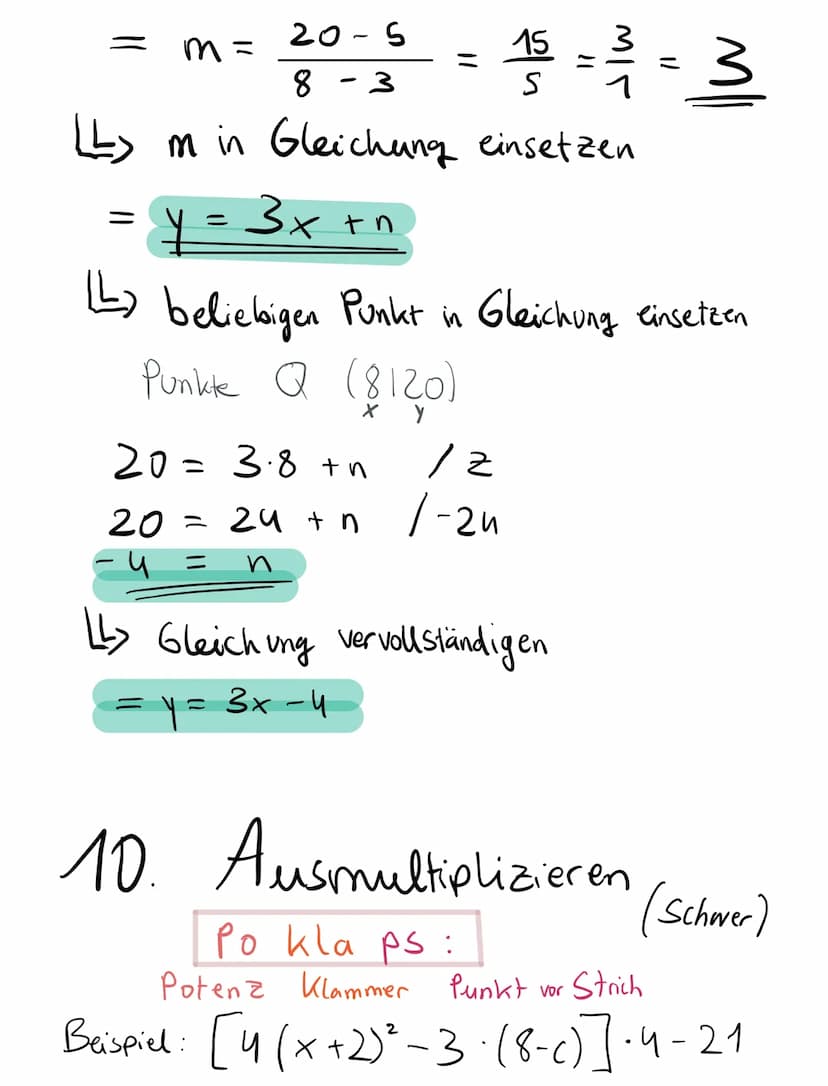 = m = \frac{20 - 5}{8 - 3} = \frac{15}{5} = \frac{3}{1} = 3
↳ m in Gleichung einsetzen
= y = 3x + n
↳ beliebigen Punkt in Gleichung einsetzen
Punkte Q (8|20)
x y
20 = 3·8 + n / z
20 = 24 + n / -24
-4 = n
↳ Gleichung vervollständigen
= y = 3x - 4
10. Ausmultiplizieren (Schwer)
Po kla ps:
Potenz Klammer Punkt vor Strich
Beispiel: [4(x+2)² - 3·(8-c)]·4 - 21